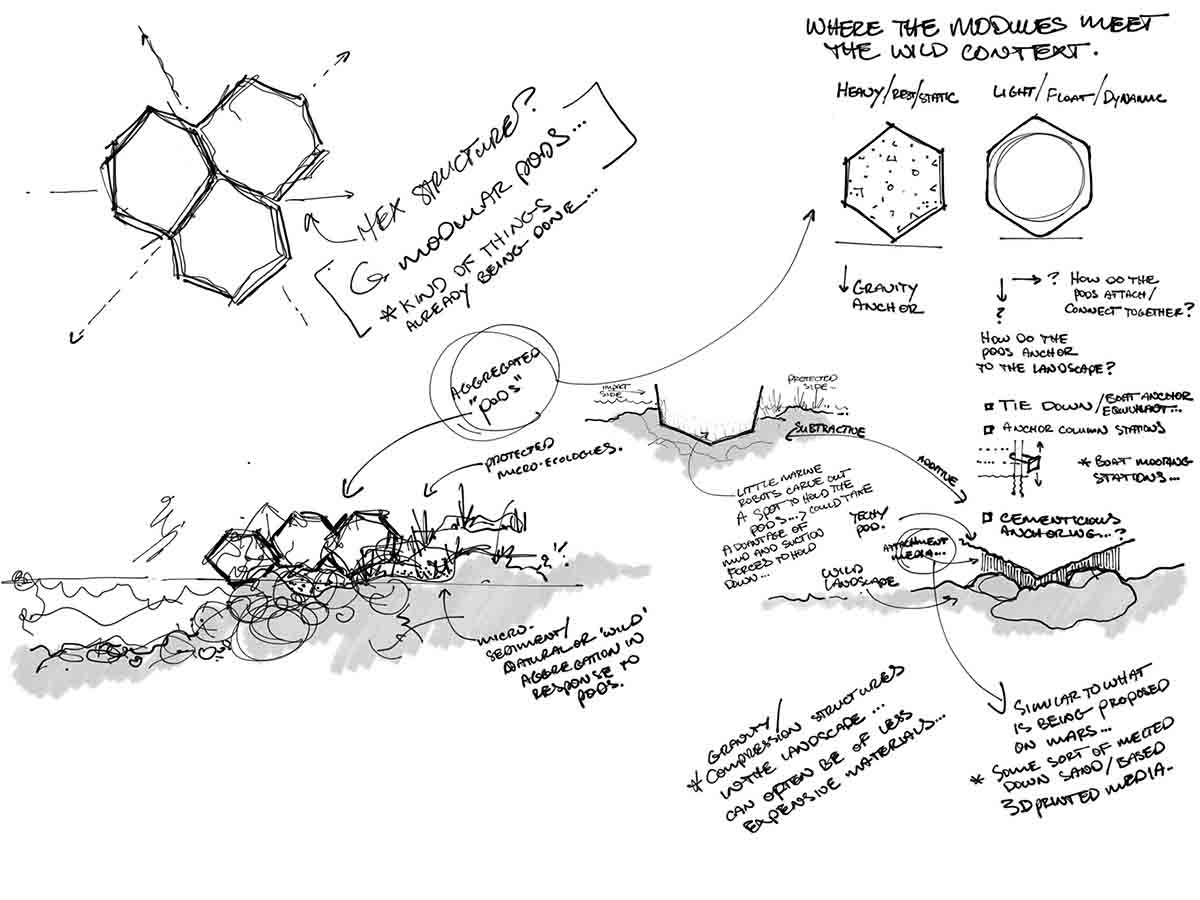 WHERE THE MODULES MEET
THE WILD CONTEXT.
HEAVY/REST/STATIC
LIGHT/FLOAT/DYNAMIC
HEX STRUCTURE?
MODULAR PODS...
* KIND OF THINGS
ALREADY BEING DONE...
↓ GRAVITY
ANCHOR
→ ? HOW DO THE
PODS ATTACH/
CONNECT TOGETHER?
↓
?
HOW DO THE
PODS ANCHOR
TO THE LANDSCAPE?
TIE DOWN/BOAT ANCHOR
EQUIVALENT...
ANCHOR COLUMN STATIONS
* BOAT MOORING
STATIONS...
CEMENTICIOUS
ANCHORING...?
AGGREGATED
"PODS"
IMPACT
SIDE
PROTECTED
SIDE-
SUBTRACTIVE
ADDITIVE
PROTECTED
MICRO-ECOLOGIES.
LITTLE MARINE
ROBOTS CARVE OUT
A SPOT TO HOLD THE
PODS...> COULD TAKE
ADVANTAGE OF
MUD AND SUCTION
FORCES TO HOLD
DOWN...
TECHY
POD.
ATTACHMENT
MEDIA...
WILD
LANDSCAPE
MICRO-
SEDIMENT/
NATURAL OR 'WILD'
AGGREGATION IN
RESPONSE TO
PODS.
GRAVITY/
* COMPRESSION STRUCTURES
IN THE LANDSCAPE...
CAN OFTEN BE OF LESS
EXPENSIVE MATERIALS...
SIMILAR TO WHAT
IS BEING PROPOSED
ON MARS...
* SOME SORT OF MELTED
DOWN SAND/BASED
3D PRINTED MEDIA-